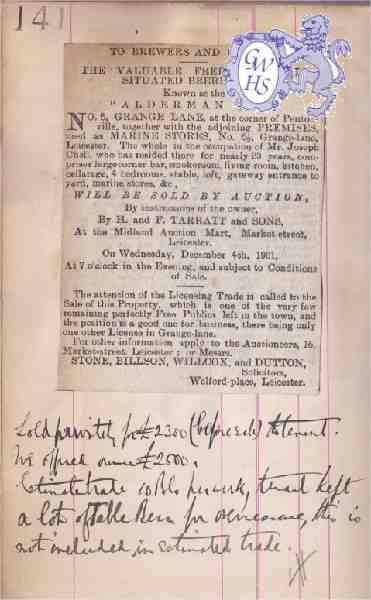 141
GWHS
TO BREWERS AND
THE VALUABLE
SITUATED
Known as the
"ALDERMAN
NO. 8, GRANGE LANE, at the corner of
ville, together with the adjoining PREMISES,
used as MARINE STORES, No. Grange-lane,
Leicester. The whole in the occupation of Mr. Joseph
who has resided there for nearly 23 years, com-
prises large corner bar, smokeroom, living room, kitchen,
cellarage, 4 bedrooms, stable, loft, gateway entrance to
yard, marine stores, &c.,
WILL BE SOLD BY AUCTION,
By instructions of the owner,
By H. and F. TARRATT and SONS,
At the Midland Auction Mart, Market-street,
Leicester,
On Wednesday, December 4th, 1901,
At 7 o'clock in the Evening, and subject to Conditions
of Sale.
The attention of the Licensing Trade is called to the
Sale of this Property, which is one of the very few
remaining perfectly Free Publics left in the town, and
the position is a good one for business, there being only
one other License in Grange-lane.
For other information apply to the Auctioneers, 16,
Market-street, Leicester; or Messrs.
STONE, BILLSON, WILLCOX, and DUTTON,
Solicitors,
Welford-place, Leicester.
Sold privately for £2300 (before sale) to tenant.
We offered owner £2000.
Estimate trade per week, tenant kept
a lot of Table Beer for, this is
not included in estimated trade.